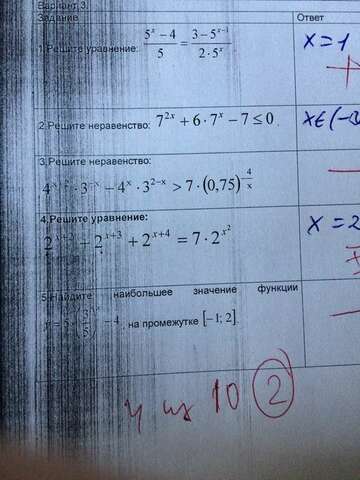 Вариант 3.
Задание
Ответ
1.Решите уравнение: (5^x − 4)/5 = (3 − 5^(x−1))/(2·5^x)
x = 1
2.Решите неравенство: 7^(2x) + 6·7^x − 7 ≤ 0.
x∈(−
3.Решите неравенство:
3^(−x) − 4^x · 3^(2−x) > 7·(0,75)
4.Решите уравнение:
2^(x+2) − 2^(x+3) + 2^(x+4) = 7·2^(x^2)
x = 2
5.Найдите наибольшее значение функции
− 4, на промежутке [−1; 2].
4 из 10 2